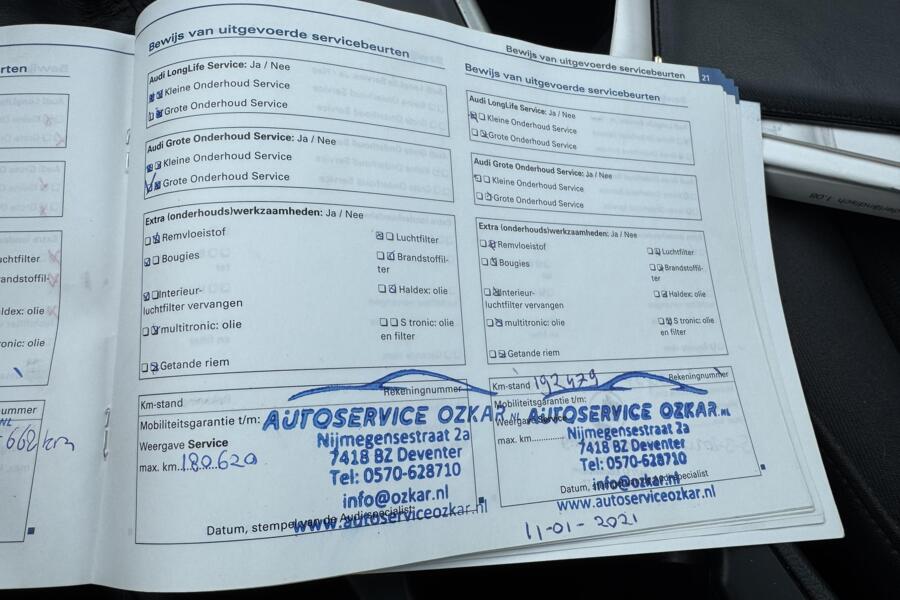 rten
uchtfilter
andstoffil-
ldex: olie
ronic: olie
ummer
668 km
Bewijs van uitgevoerde servicebeurten
Audi LongLife Service: Ja / Nee
Kleine Onderhoud Service
Grote Onderhoud Service
Audi Grote Onderhoud Service: Ja / Nee
Kleine Onderhoud Service
Grote Onderhoud Service
Extra (onderhouds)werkzaamheden: Ja / Nee
Remvloeistof
Luchtfilter
Bougies
Brandstoffil-
ter
Interieur-
luchtfilter vervangen
Haldex: olie
multitronic: olie
S tronic: olie
en filter
Getande riem
Km-stand
Rekeningnummer
Mobiliteitsgarantie t/m:
Weergave Service
max. km. 180.620
AUTOSERVICE OZKAR.NL
Nijmegensestraat 2a
7418 BZ Deventer
Tel: 0570-628710
info@ozkar.nl
www.autoserviceozkar.nl
Datum, stempel van de Audi-specialist
Bewijs van uitgevoerde servicebeurten
21
Bewijs van uitgevoerde servicebeurten
Audi LongLife Service: Ja / Nee
Kleine Onderhoud Service
Grote Onderhoud Service
Audi Grote Onderhoud Service: Ja / Nee
Kleine Onderhoud Service
Grote Onderhoud Service
Extra (onderhouds)werkzaamheden: Ja / Nee
Remvloeistof
Luchtfilter
Bougies
Brandstoffil-
ter
Interieur-
luchtfilter vervangen
Haldex: olie
multitronic: olie
S tronic: olie
en filter
Getande riem
Km-stand 192479
Rekeningnummer
Mobiliteitsgarantie t/m:
Weergave Service
max. km.
AUTOSERVICE OZKAR.NL
Nijmegensestraat 2a
7418 BZ Deventer
Tel: 0570-628710
info@ozkar.nl
www.autoserviceozkar.nl
Datum, stempel van de Audi-specialist
11-01-2021